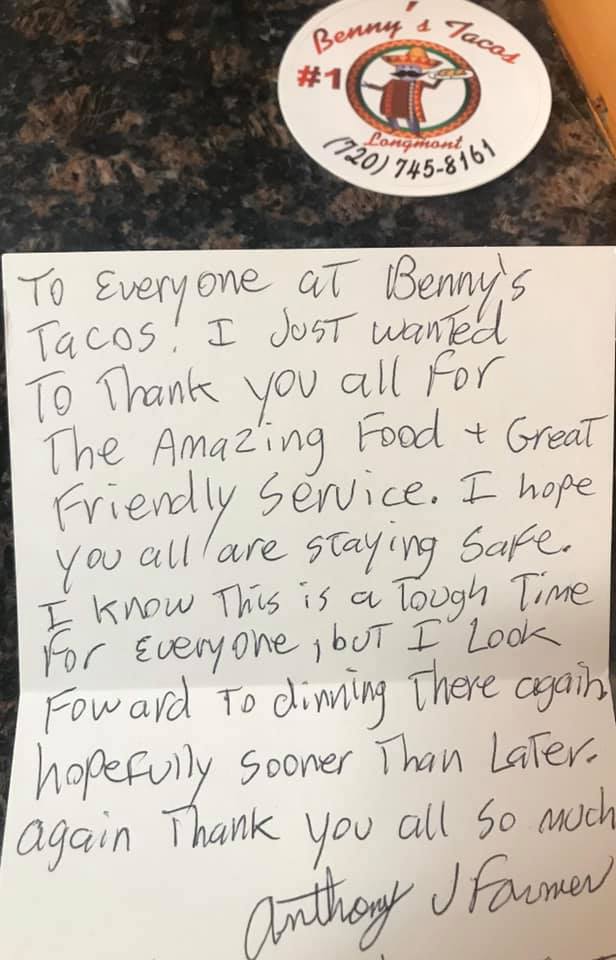 Benny's Tacos
#1
Longmont
(720) 745-8161
To Everyone at Benny's
Tacos! I Just wanted
To Thank you all For
The Amazing Food + Great
Friendly Service. I hope
you all are staying Safe.
I know This is a Tough Time
For Everyone, but I Look
Foward To dinning There again
hopefully sooner Than Later.
again Thank you all so much
Anthony J Farmer